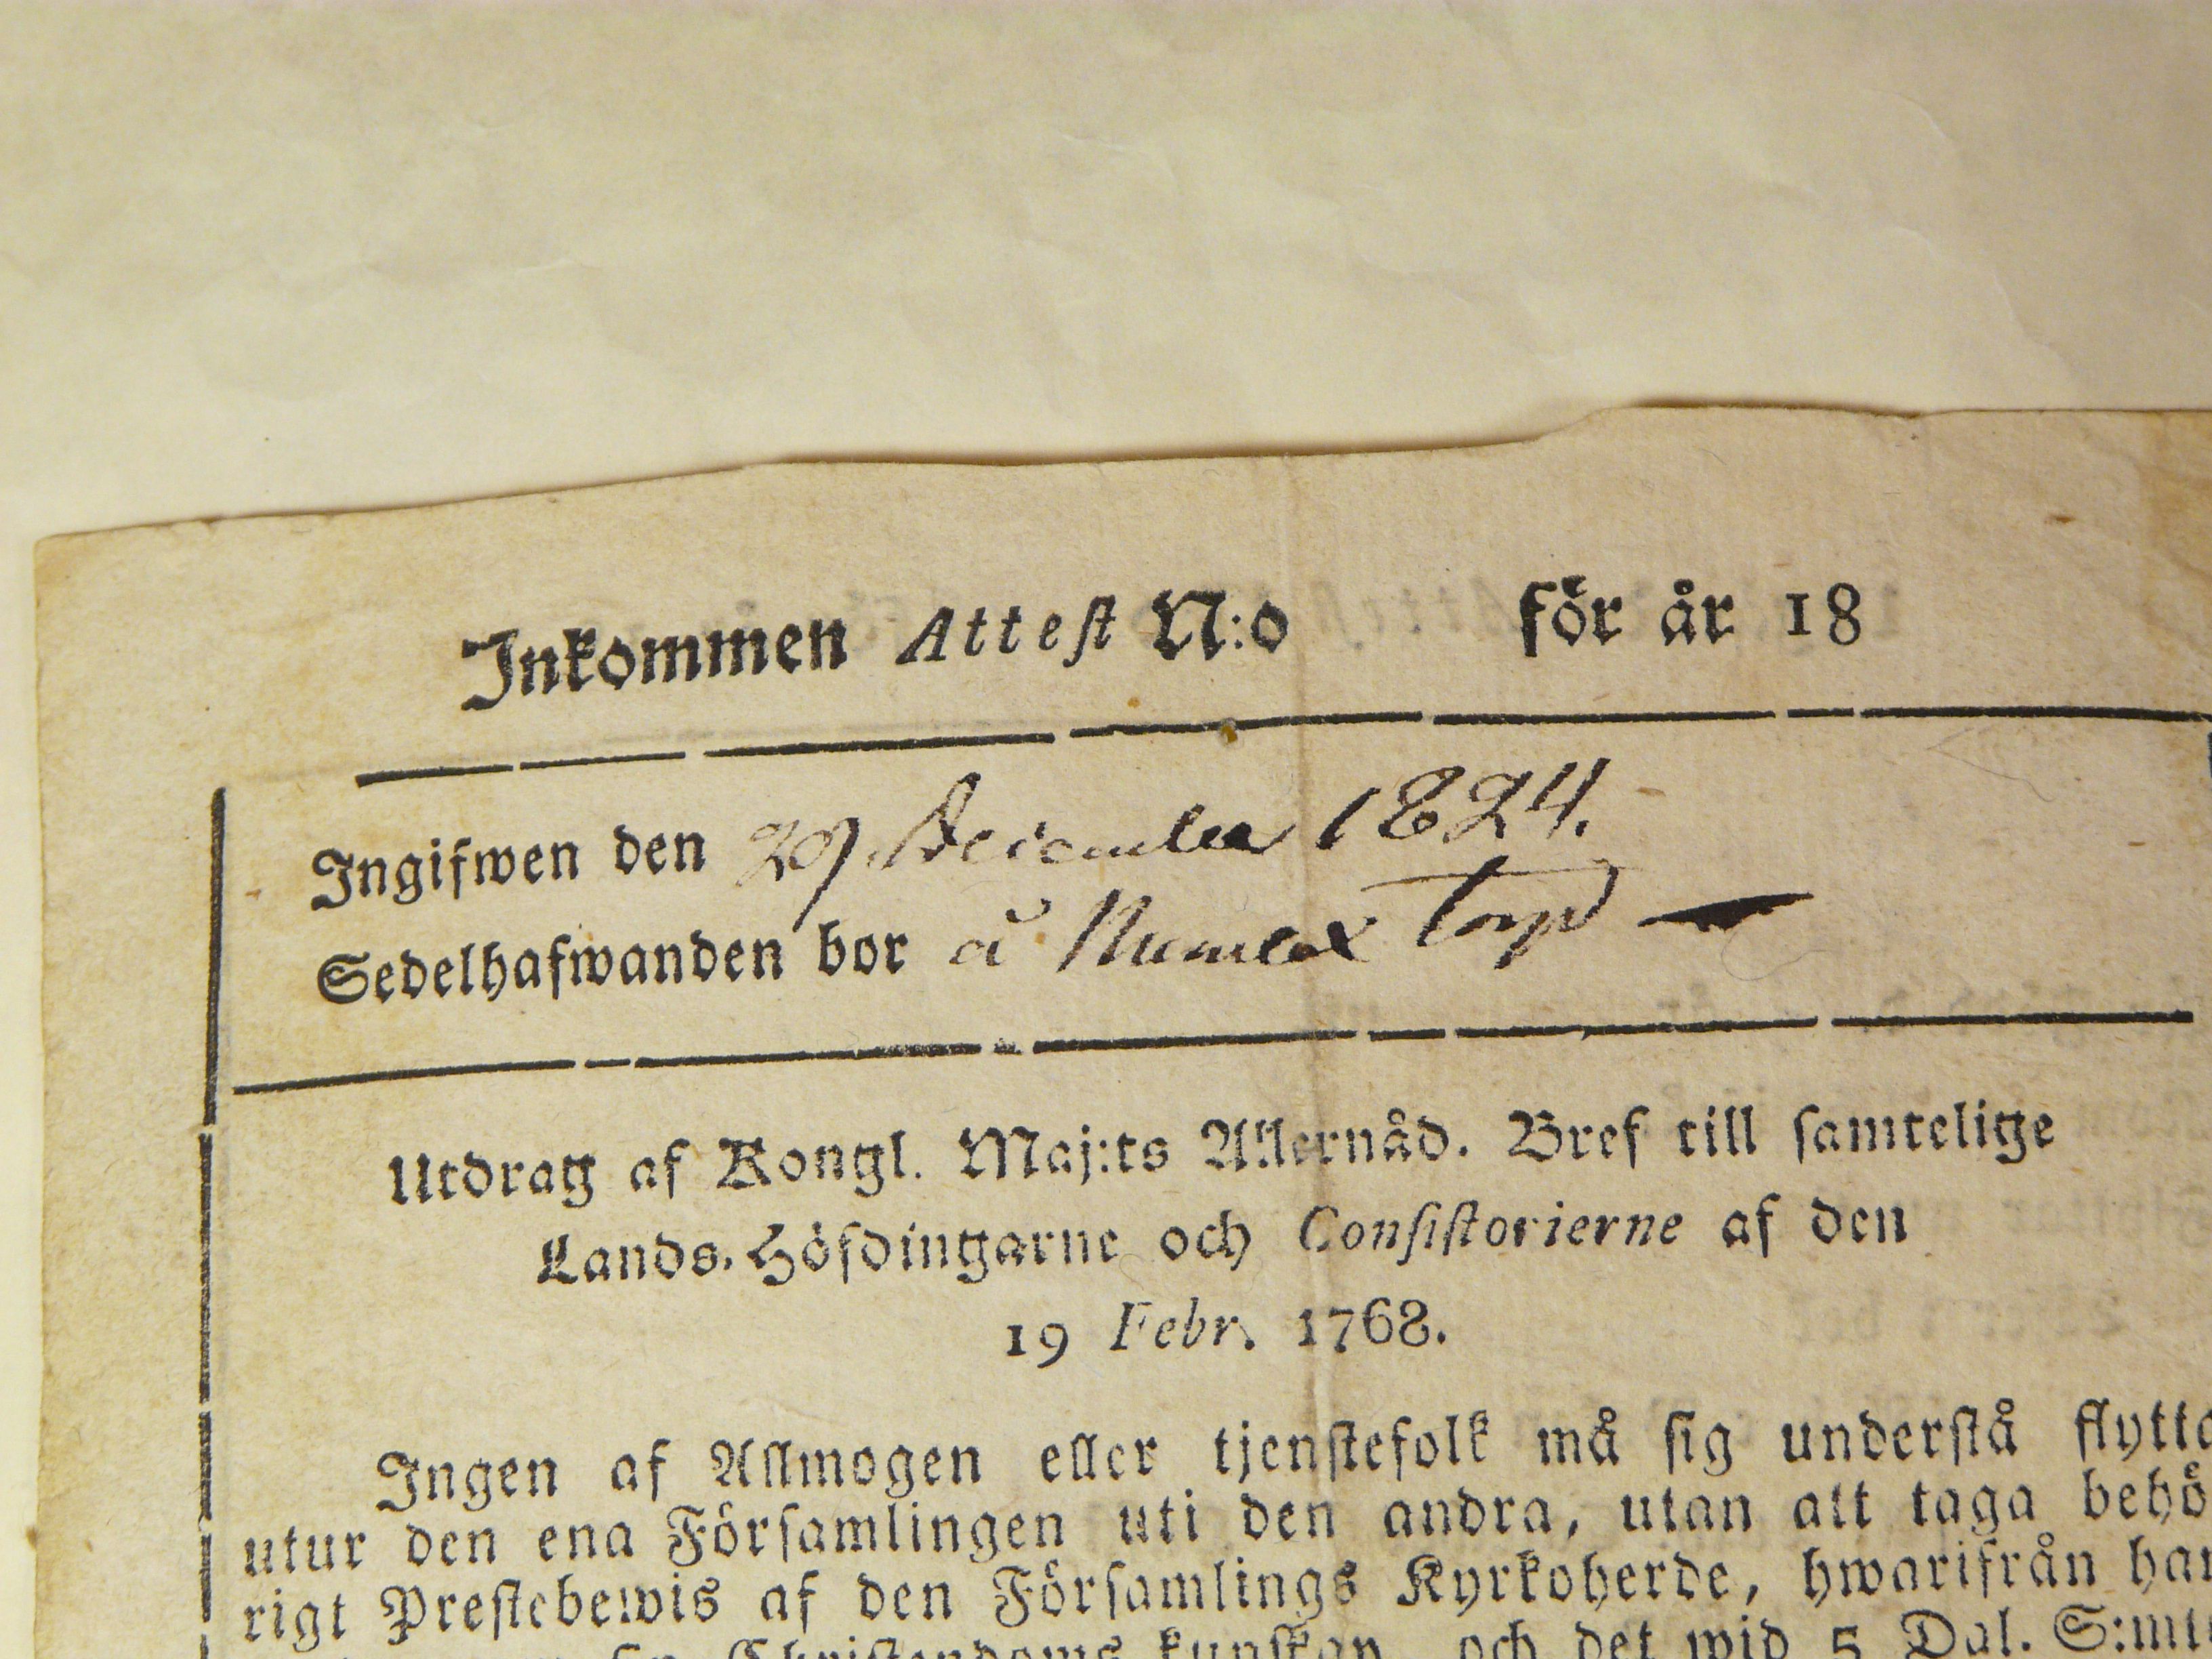 Inkommen Attest N:o för år 18
Ingifwen den 29. December 1824.
Sedelhafwanden bor å Torp
Utdrag af Kongl. Maj:ts Allernåd. Bref till samtelige
Lands-Höfdingarne och Consistorierne af den
19 Febr. 1768.
Ingen af Allmogen eller tjenstefolk må sig understå flytta
utur den ena Församlingen uti den andra, utan att taga behö
rigt Prestebewis af den Församlings Kyrkoherde, hwarifrån han
Christendoms kunskap, och det wid 5 Dal. S:mt